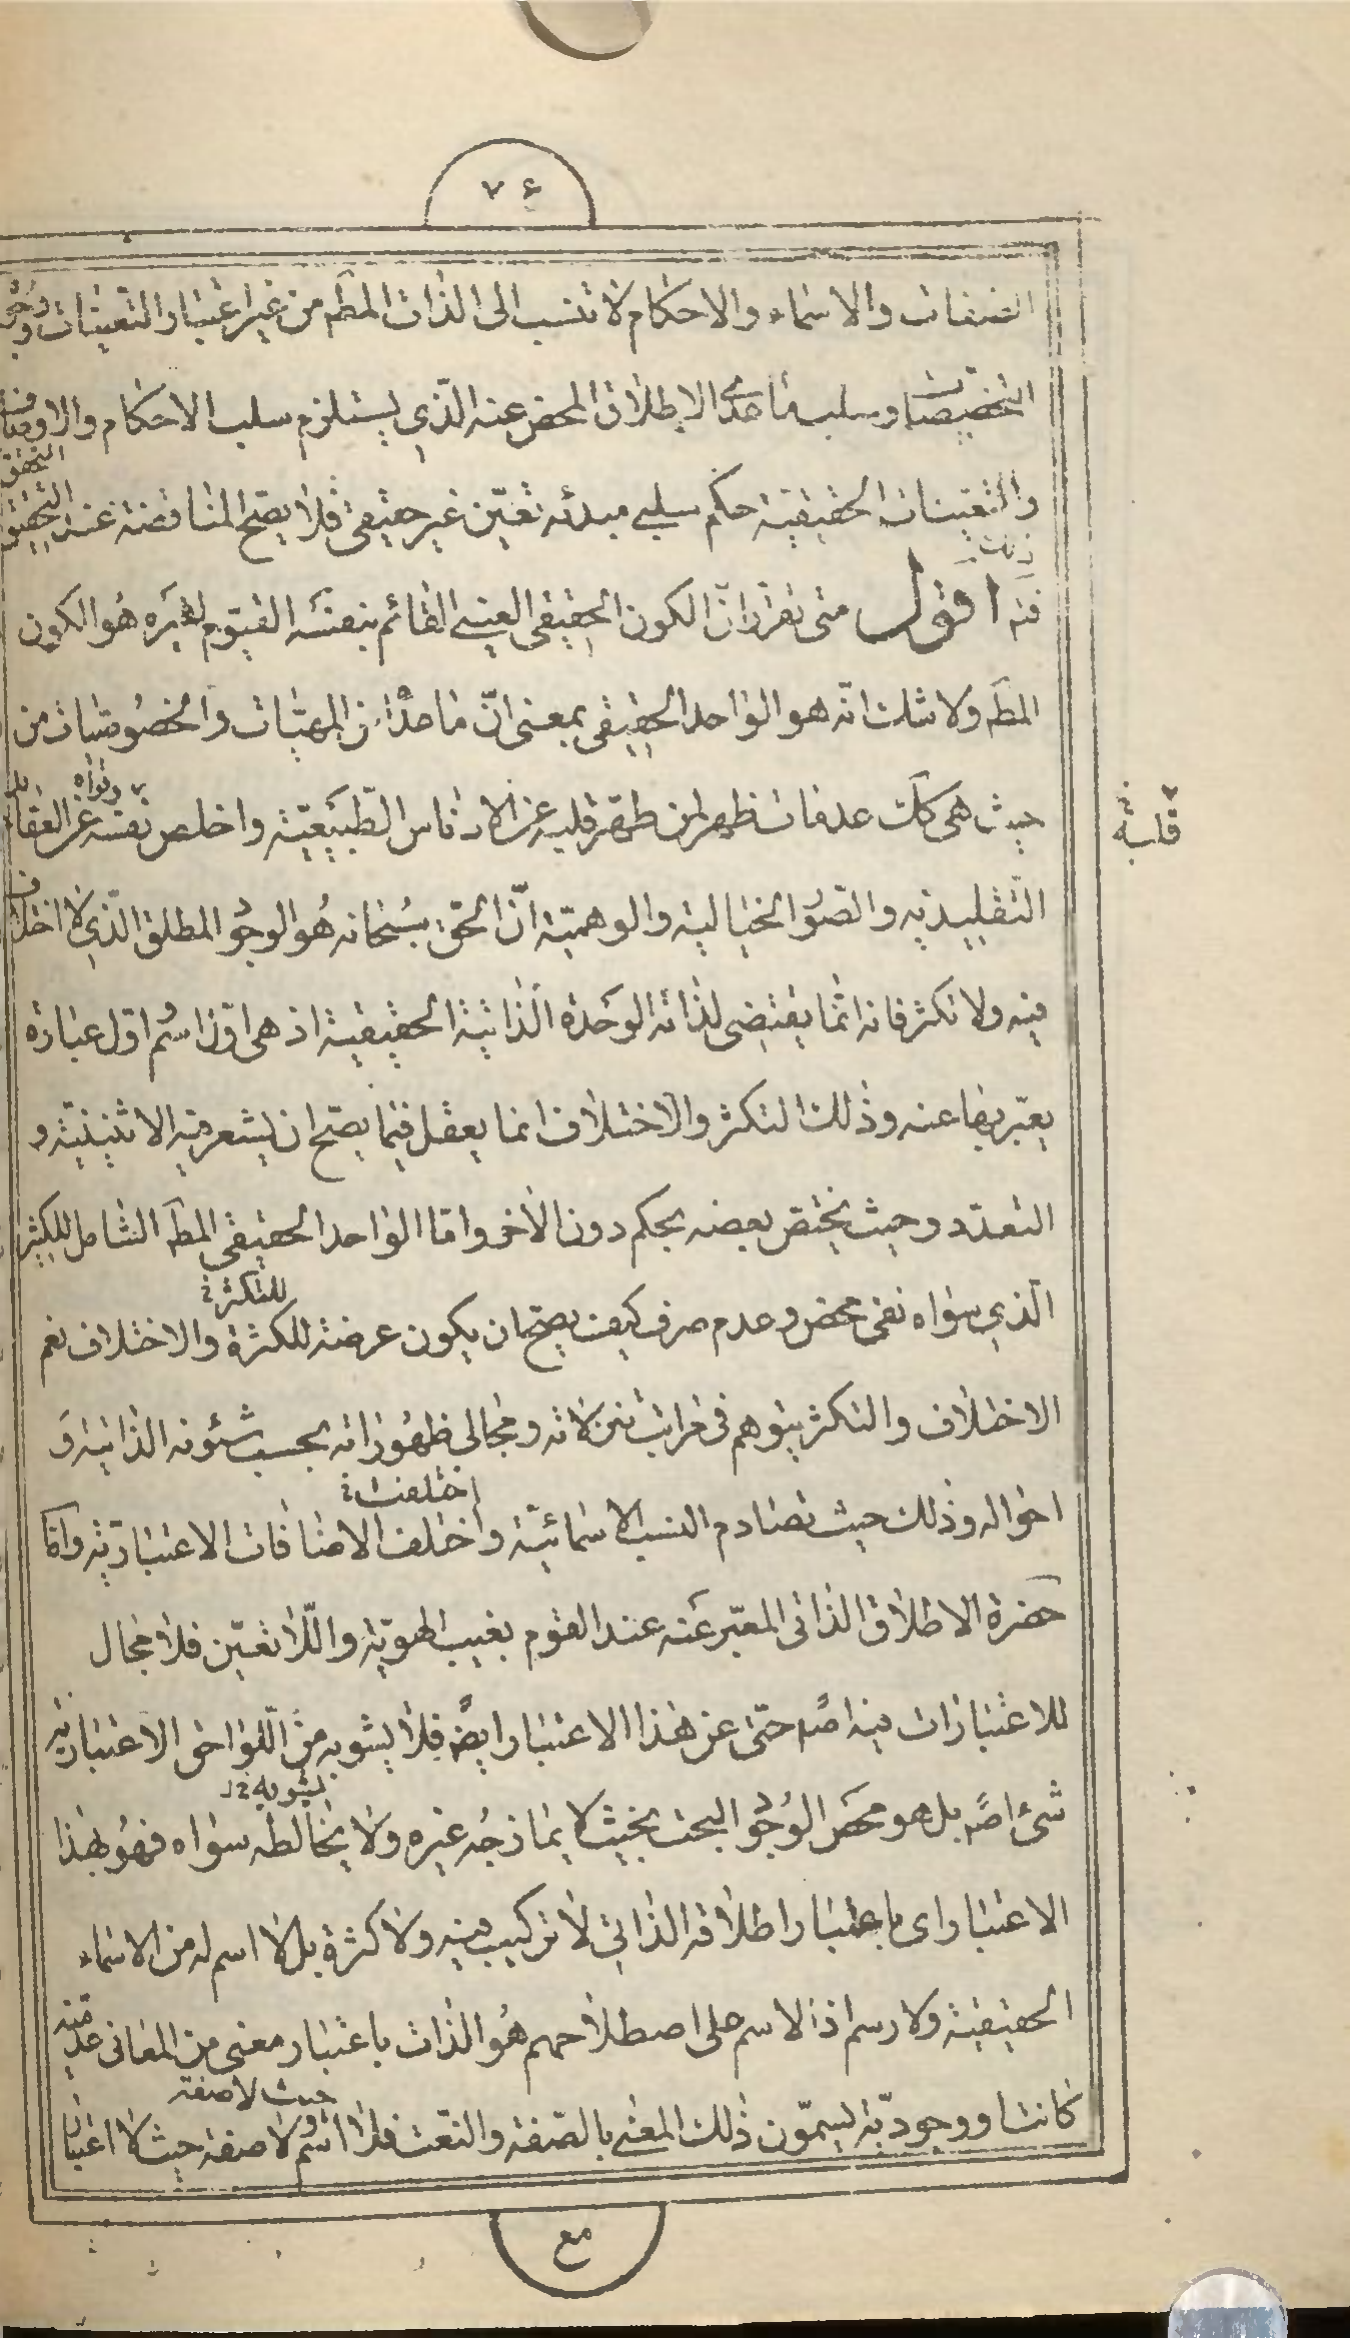 ٧٤
الصفات والاسماء والاحكام لا تنسب الى الذات المطم من غير اعتبار التعينات ووجوه
التخصيصات وسلب ما عدا الاطلاق المحض عنه الذي يستلزم سلب الاحكام والاوصاف
والتعينات الحقيقية حكم سلبى مبدئه تعين غير حقيقى فلا يصح المناقضة عند التحقيق
التحقق
فتم اقول متى تقرر ان الكون الحقيقى العينى القائم بنفسه القيوم لغيره هو الكون
المطم ولا شك انه هو الواحد الحقيقى بمعنى ان ما عداه من المهيات والخصوصيات من
حيث هى كك عدمات ظهر لمن طهر قلبه عن الادناس الطبيعية واخلص نفسه عن العقائد
وقواه
قلبه
التقليدية والصور الخيالية والوهمية ان الحق سبحانه هو الوجود المطلق الذي لا اختلاف
فيه ولا تكثر فانه انما يقتضى لذاته الوحدة الذاتية الحقيقية اذ هى اول اسم اول عبارة
يعبر بها عنه وذلك التكثر والاختلاف انما يعقل فيما يصح ان يشعر فيه الاثنينية و
التعدد وحيث يختص بعضه بحكم دون الاخر واما الواحد الحقيقى المطم الشامل للكثير
الذي سواه نفى محض وعدم صرف كيف يصح ان يكون عرضة للكثرة والاختلاف نعم
للتكثر
الاختلاف والتكثر يتوهم فى مراتب تنزلاته ومجالى ظهوراته بحسب شئونه الذاتية و
احواله وذلك حيث تصادم النسب الاسمائية واختلف الاضافات الاعتبارية واما
اختلفت
حضرة الاطلاق الذاتى المعبر عنه عند القوم بغيب الهوية واللا تعين فلا مجال
للاعتبارات فيه اصم حتى عن هذا الاعتبار ايضم فلا يشوبه من اللواحق الاعتبارية
شىء اصم بل هو محض الوجود البحت بحيث لا يمازجه غيره ولا يخالطه سواه فهو بهذا
يشوبه
الاعتبار اى باعتبار اطلاقه الذاتي لا تركيب فيه ولا كثرة بل لا اسم له من الاسماء
الحقيقية ولا رسم اذ الاسم على اصطلاحهم هو الذات باعتبار معنى من المعانى عدمية
كانت او وجودية يسمون ذلك المعنى بالصفة والنعت فلا اسم ولا صفة حيث لا اعتبار
حيث لا صفة
مع